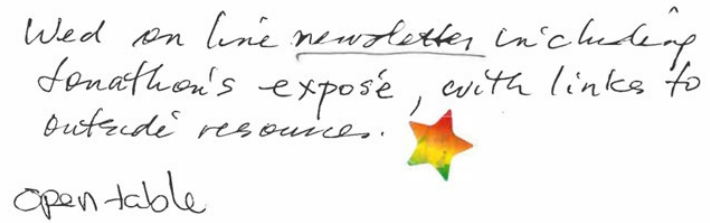 Wed on line newsletter including
Jonathon's exposé, with links to
outside resources.
open table